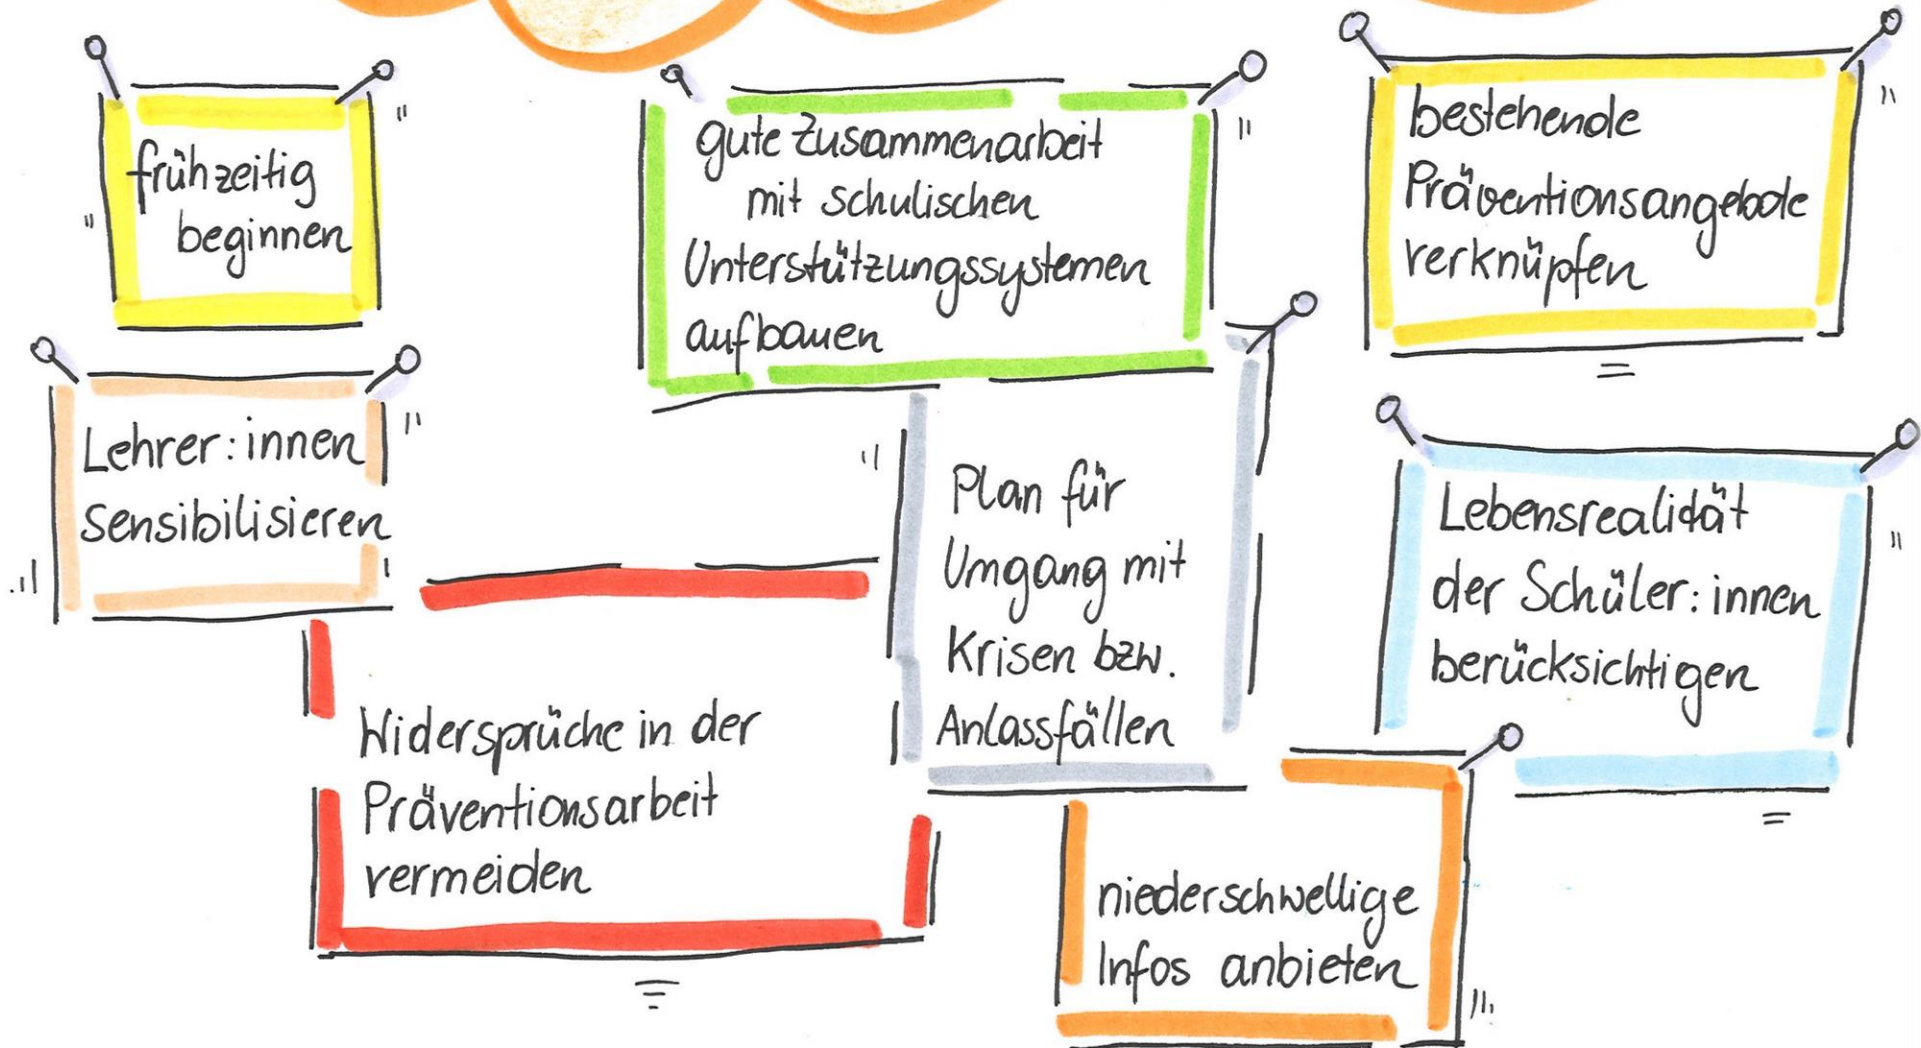 frühzeitig
beginnen
gute Zusammenarbeit
mit schulischen
Unterstützungssystemen
aufbauen
bestehende
Präventionsangebote
verknüpfen
Lehrer:innen
sensibilisieren
Plan für
Umgang mit
Krisen bzw.
Anlassfällen
Lebensrealität
der Schüler:innen
berücksichtigen
Widersprüche in der
Präventionsarbeit
vermeiden
niederschwellige
Infos anbieten